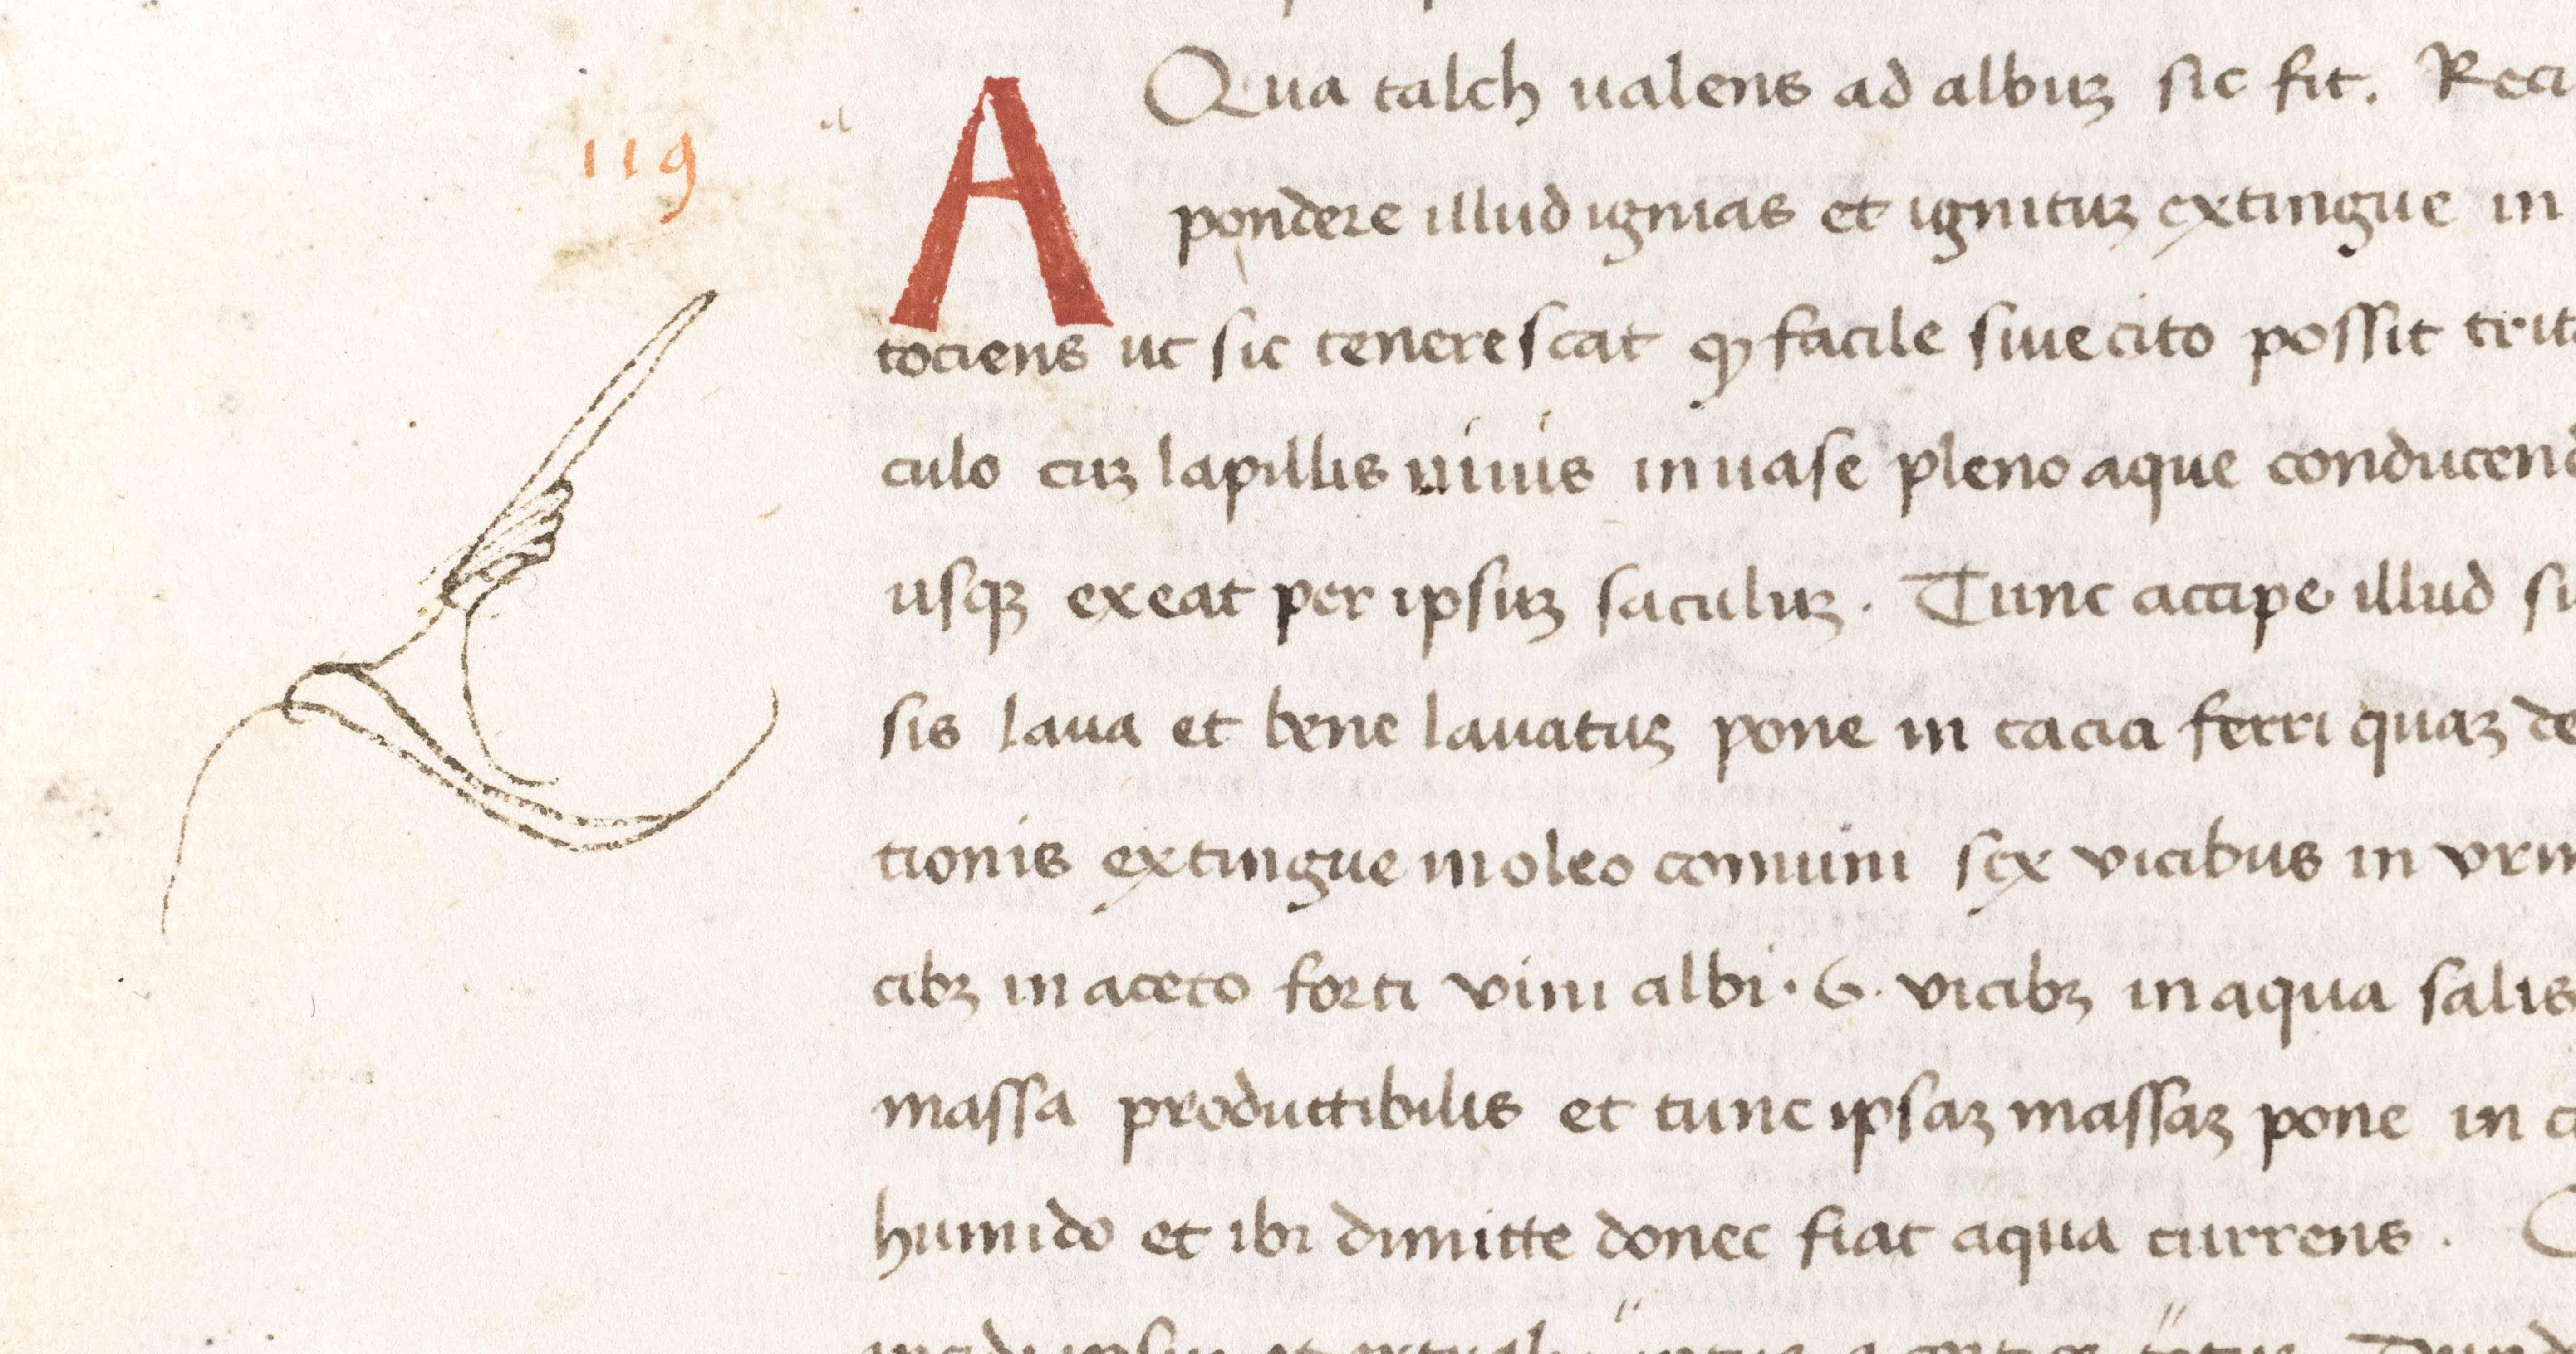 119
AQua talch ualens ad albuꝫ sic fit. Reci
pondere illud ignias et ignituꝫ extingue in
tociens ut sic tenerescat ꝙ facile siue cito possit trit
culo cuꝫ lapillis uiuis in uase pleno aque conducend
usqꝫ exeat per ipsuꝫ saculuꝫ. Tunc accipe illud su
sis laua et bene lauatuꝫ pone in cacia ferri quaꝫ de
tionis extingue in oleo comuni sex vicibus in vrin
cibꝫ in aceto forti vini albi. 6. vicibꝫ in aqua salis
massa produttibilis et tunc ipsaꝫ massaꝫ pone in c
humido et ibi dimitte donec fiat aqua currens.